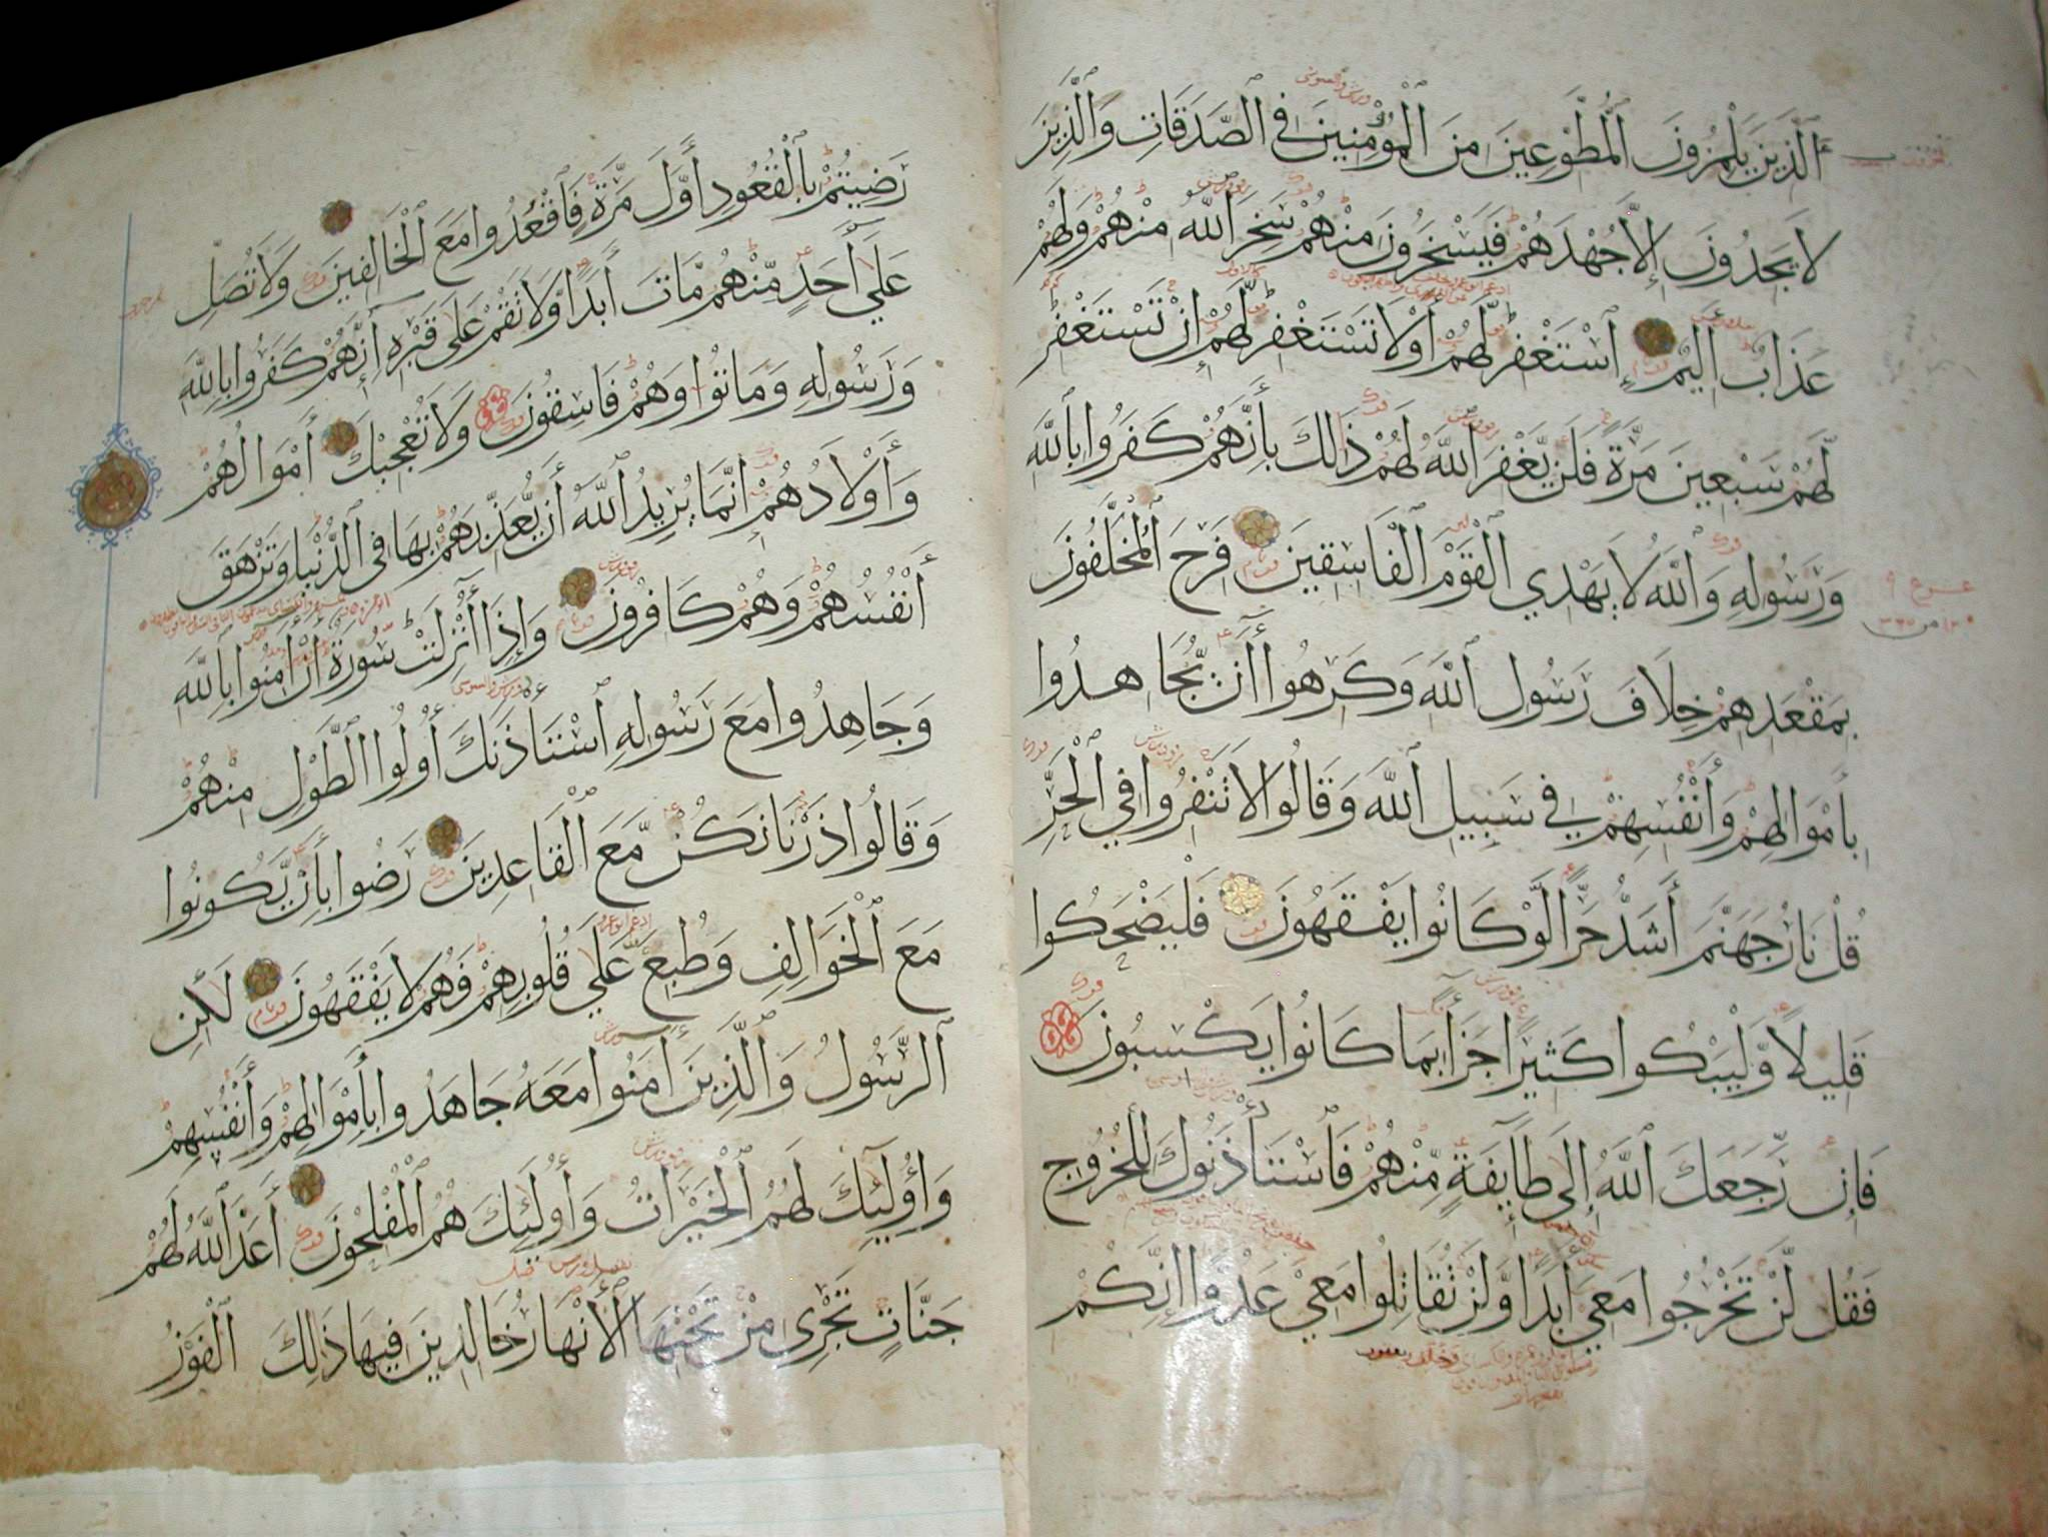 ٱلَّذِينَ يَلْمِزُونَ ٱلْمُطَّوِّعِينَ مِنَ ٱلْمُؤْمِنِينَ فِي ٱلصَّدَقَاتِ وَٱلَّذِينَ
لَا يَجِدُونَ إِلَّا جُهْدَهُمْ فَيَسْخَرُونَ مِنْهُمْ سَخِرَ ٱللَّهُ مِنْهُمْ وَلَهُمْ
عَذَابٌ أَلِيمٌ ٱسْتَغْفِرْ لَهُمْ أَوْ لَا تَسْتَغْفِرْ لَهُمْ إِنْ تَسْتَغْفِرْ
لَهُمْ سَبْعِينَ مَرَّةً فَلَنْ يَغْفِرَ ٱللَّهُ لَهُمْ ذَٰلِكَ بِأَنَّهُمْ كَفَرُوا بِٱللَّهِ
وَرَسُولِهِ وَٱللَّهُ لَا يَهْدِي ٱلْقَوْمَ ٱلْفَاسِقِينَ فَرِحَ ٱلْمُخَلَّفُونَ
بِمَقْعَدِهِمْ خِلَافَ رَسُولِ ٱللَّهِ وَكَرِهُوا أَنْ يُجَاهِدُوا
بِأَمْوَالِهِمْ وَأَنْفُسِهِمْ فِي سَبِيلِ ٱللَّهِ وَقَالُوا لَا تَنْفِرُوا فِي ٱلْحَرِّ
قُلْ نَارُ جَهَنَّمَ أَشَدُّ حَرًّا لَوْ كَانُوا يَفْقَهُونَ فَلْيَضْحَكُوا
قَلِيلًا وَلْيَبْكُوا كَثِيرًا جَزَآءً بِمَا كَانُوا يَكْسِبُونَ
فَإِن رَّجَعَكَ ٱللَّهُ إِلَى طَآئِفَةٍ مِّنْهُمْ فَٱسْتَأْذَنُوكَ لِلْخُرُوجِ
فَقُل لَّنْ تَخْرُجُوا مَعِيَ أَبَدًا وَلَنْ تُقَاتِلُوا مَعِيَ عَدُوًّا إِنَّكُمْ
رَضِيتُمْ بِٱلْقُعُودِ أَوَّلَ مَرَّةٍ فَٱقْعُدُوا مَعَ ٱلْخَالِفِينَ وَلَا تُصَلِّ
عَلَى أَحَدٍ مِّنْهُمْ مَّاتَ أَبَدًا وَلَا تَقُمْ عَلَى قَبْرِهِ إِنَّهُمْ كَفَرُوا بِٱللَّهِ
وَرَسُولِهِ وَمَاتُوا وَهُمْ فَاسِقُونَ وَلَا تُعْجِبْكَ أَمْوَالُهُمْ
وَأَوْلَادُهُمْ إِنَّمَا يُرِيدُ ٱللَّهُ أَنْ يُعَذِّبَهُمْ بِهَا فِي ٱلدُّنْيَا وَتَزْهَقَ
أَنْفُسُهُمْ وَهُمْ كَافِرُونَ وَإِذَا أُنْزِلَتْ سُورَةٌ أَنْ آمِنُوا بِٱللَّهِ
وَجَاهِدُوا مَعَ رَسُولِهِ ٱسْتَأْذَنَكَ أُولُوا ٱلطَّوْلِ مِنْهُمْ
وَقَالُوا ذَرْنَا نَكُنْ مَّعَ ٱلْقَاعِدِينَ رَضُوا بِأَنْ يَكُونُوا
مَعَ ٱلْخَوَالِفِ وَطُبِعَ عَلَى قُلُوبِهِمْ فَهُمْ لَا يَفْقَهُونَ لَٰكِنِ
ٱلرَّسُولُ وَٱلَّذِينَ آمَنُوا مَعَهُ جَاهَدُوا بِأَمْوَالِهِمْ وَأَنْفُسِهِمْ
وَأُولَٰئِكَ لَهُمُ ٱلْخَيْرَاتُ وَأُولَٰئِكَ هُمُ ٱلْمُفْلِحُونَ أَعَدَّ ٱللَّهُ لَهُمْ
جَنَّاتٍ تَجْرِي مِنْ تَحْتِهَا ٱلْأَنْهَارُ خَالِدِينَ فِيهَا ذَٰلِكَ ٱلْفَوْزُ